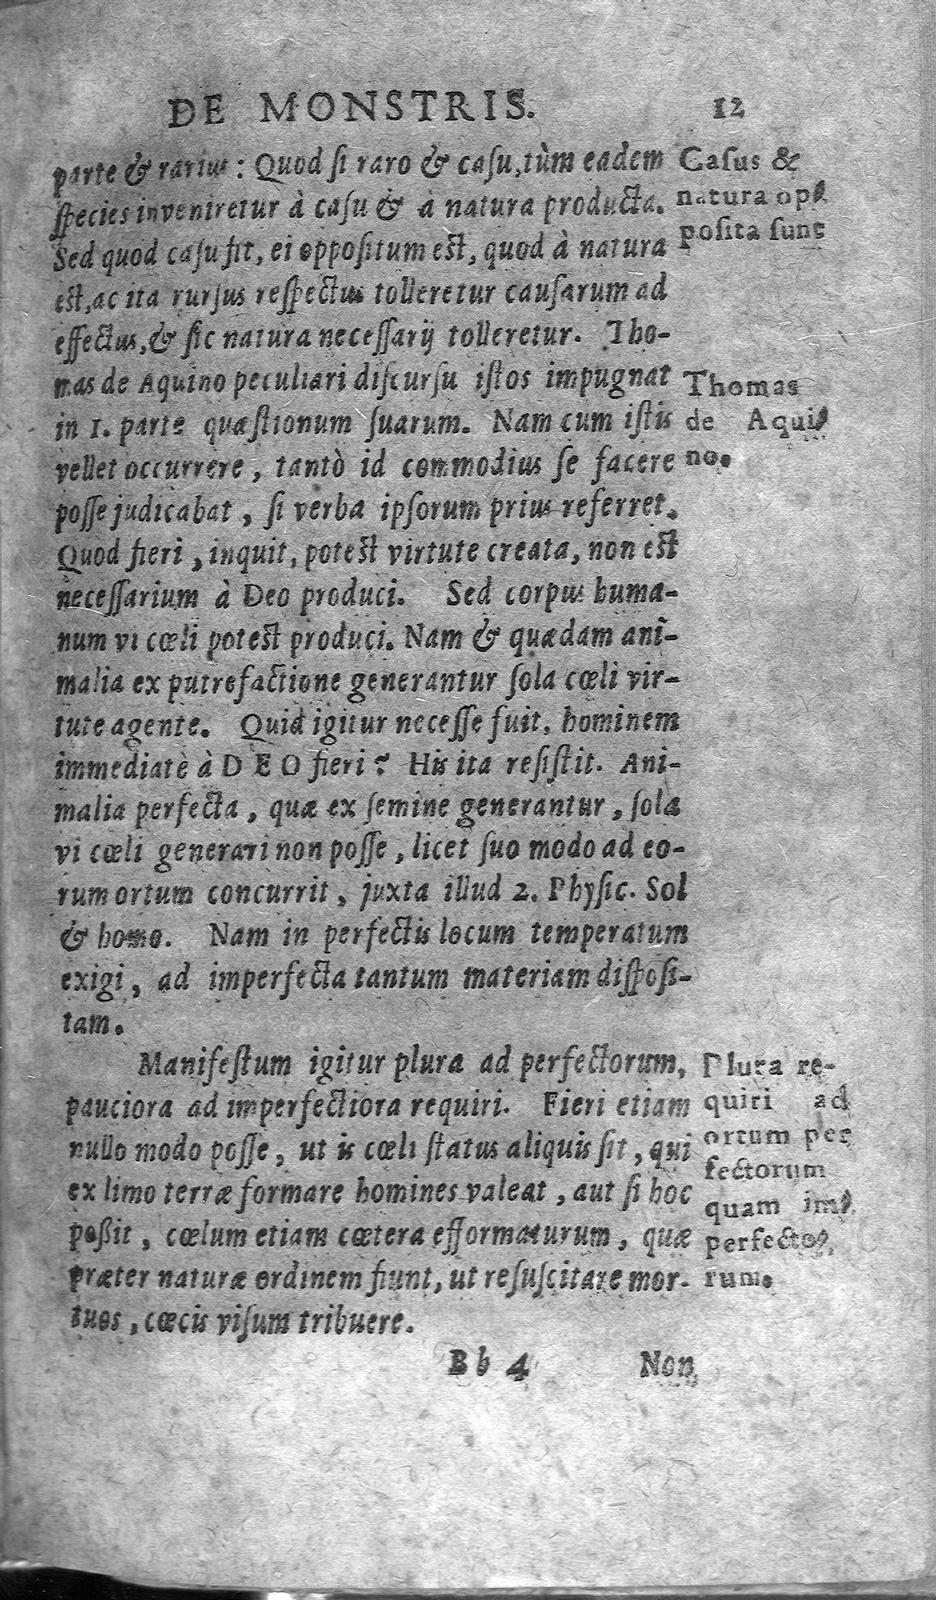 DE MONSTRIS. 12
parte & rarius : Quod si raro & casu, tùm eadem
species inveniretur à casu & à natura producta.
Sed quod casu fit, ei oppositum est, quod à natura
est, ac ita rursus respectus tolleretur causarum ad
effectus, & sic natura necessarij tolleretur. Tho-
mas de Aquino peculiari discursu istos impugnat
in 1. parte quæstionum suarum. Nam cum istis
vellet occurrere, tantò id commodius se facere
posse judicabat, si verba ipsorum prius referret.
Quod fieri, inquit, potest virtute creata, non est
necessarium à Deo produci. Sed corpus huma-
num vi cœli potest produci. Nam & quædam ani-
malia ex putrefactione generantur sola cœli vir-
tute agente. Quid igitur necesse fuit, hominem
immediatè à DEO fieri? His ita resistit. Ani-
malia perfecta, quæ ex semine generantur, sola
vi cœli generari non posse, licet suo modo ad eo-
rum ortum concurrit, juxta illud 2. Physic. Sol
& homo. Nam in perfectis locum temperatum
exigi, ad imperfecta tantum materiam disposi-
tam.
Manifestum igitur plura ad perfectorum,
pauciora ad imperfectiora requiri. Fieri etiam
nullo modo posse, ut is cœli status aliquis sit, qui
ex limo terræ formare homines valeat, aut si hoc
possit, cœlum etiam cœtera efformaturum, quæ
præter naturæ ordinem fiunt, ut resuscitare mor-
tuos, cœcis visum tribuere.
Bb 4 Non
Casus &
natura op-
posita sunt
Thomas
de Aqui-
no.
Plura re-
quiri ad
ortum per
fectorum
quam im-
perfecto-
rum.